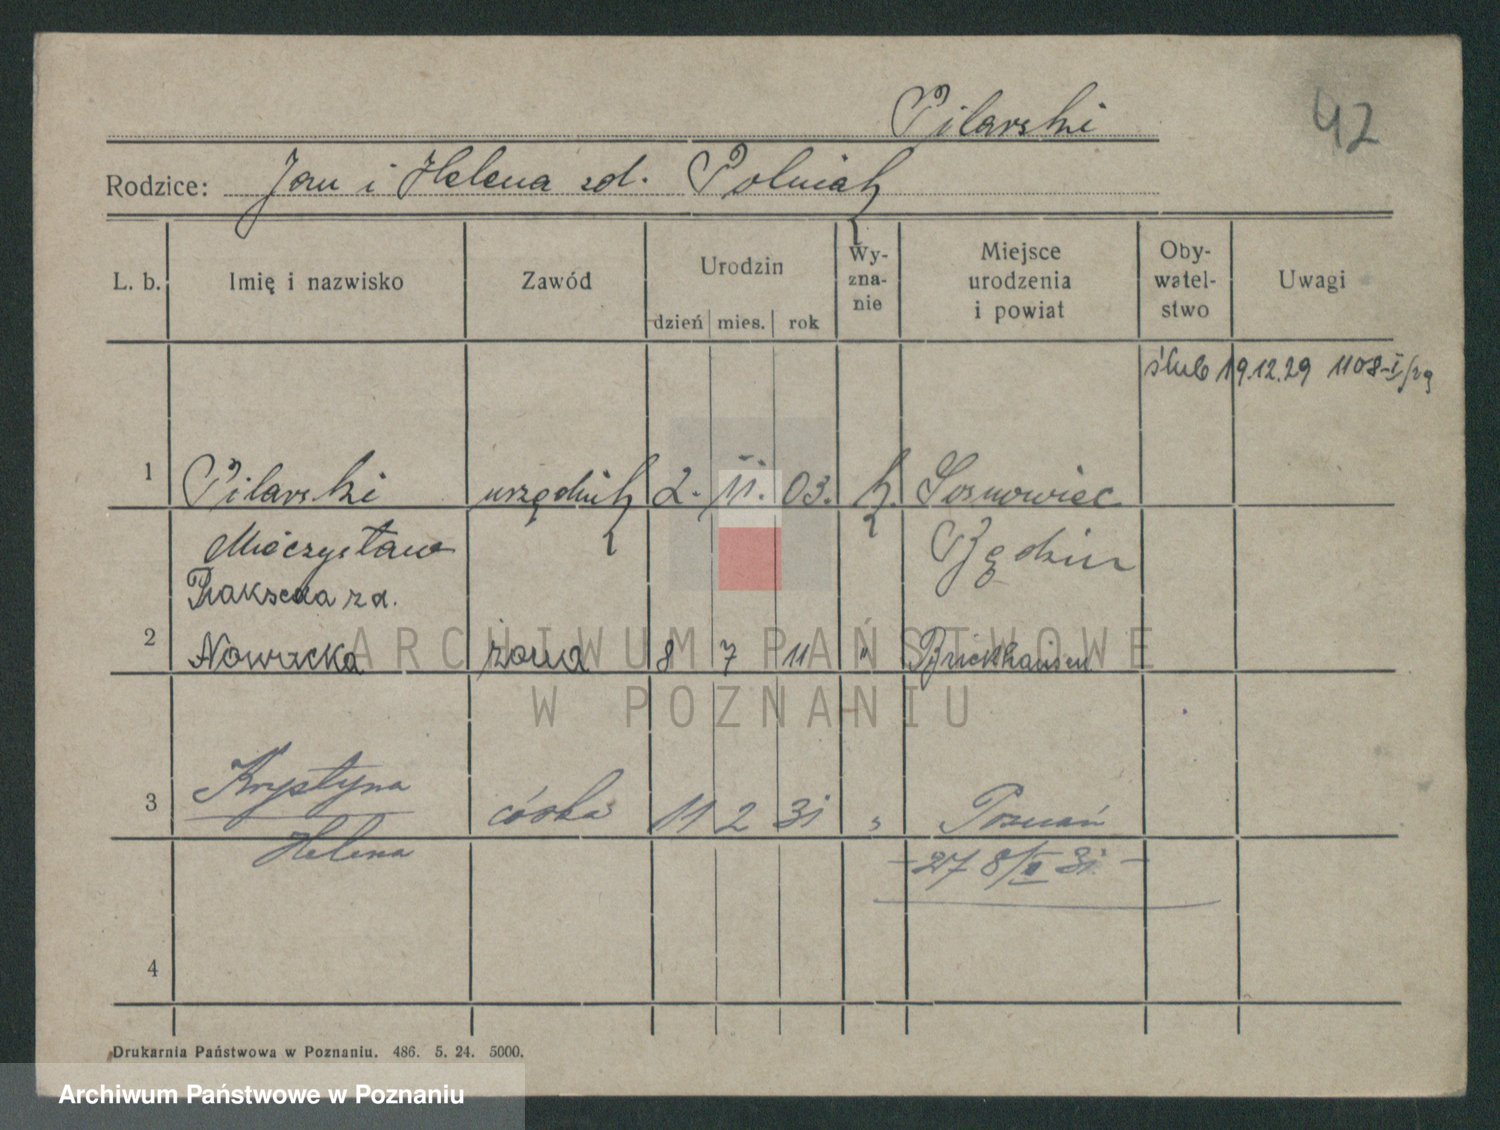 Pilarski
42
Rodzice: Jan i Helena zd. Polniak
L. b. Imię i nazwisko Zawód Urodzin dzień mies. rok Wy-zna-nie Miejsce urodzenia i powiat Oby-watel-stwo Uwagi
ślub 19.12.29 1108-I/29
1 Pilarski urzędnik 2. 11. 03. k. Sosnowiec
Mieczysław Będzin
Prakseda zd.
2 Nowacka żona 8 7 11 " Brickhausen
ARCHIWUM PAŃSTWOWE
W POZNANIU
Krystyna
3 córka 11 2 31 " Poznań
Helena 27 8/II 31
4
Drukarnia Państwowa w Poznaniu. 486. 5. 24. 5000.
Archiwum Państwowe w Poznaniu